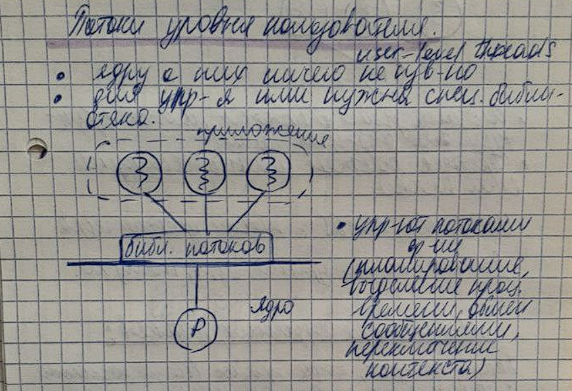 Потоки уровня пользователя.
user-level threads
• ядру о них ничего не изв-но
• для упр-я ими нужна спец. библи-
отека.
приложения
библ. потоков
ядро
P
• упр-ют потоками
ф-ии
(планирование,
выделение проц.
времени, обмен
сообщениями,
переключение
контекста)